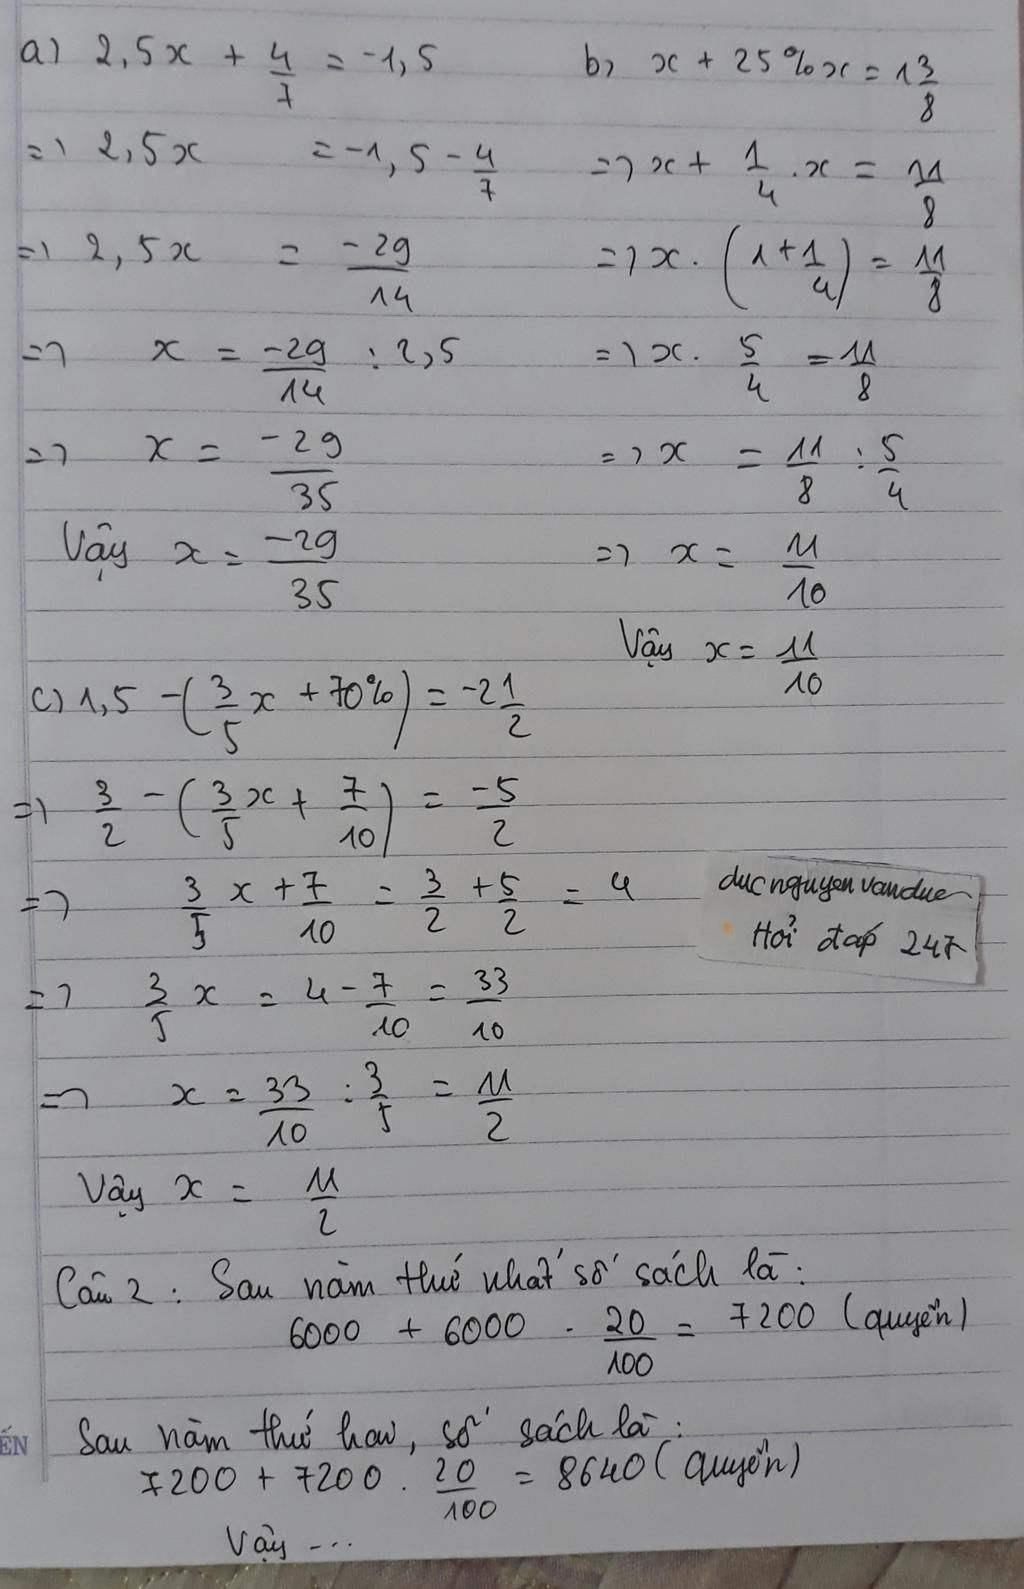 a) 2,5x + 4/7 = -1,5
=> 2,5x = -1,5 - 4/7
=> 2,5x = -29/14
=> x = -29/14 : 2,5
=> x = -29/35
Vậy x = -29/35
b) x + 25%x = 1 3/8
=> x + 1/4 . x = 11/8
=> x . (1 + 1/4) = 11/8
=> x . 5/4 = 11/8
=> x = 11/8 : 5/4
=> x = 11/10
Vậy x = 11/10
c) 1,5 - (3/5 x + 70%) = -2 1/2
=> 3/2 - (3/5 x + 7/10) = -5/2
=> 3/5 x + 7/10 = 3/2 + 5/2 = 4
=> 3/5 x = 4 - 7/10 = 33/10
=> x = 33/10 : 3/5 = 11/2
Vậy x = 11/2
ducnguyenvanduc
Hỏi đáp 247
Câu 2 : Sau năm thứ nhất số sách là :
6000 + 6000 . 20/100 = 7200 (quyển)
Sau năm thứ hai, số sách là :
7200 + 7200 . 20/100 = 8640 (quyển)
Vậy ...
ẾN